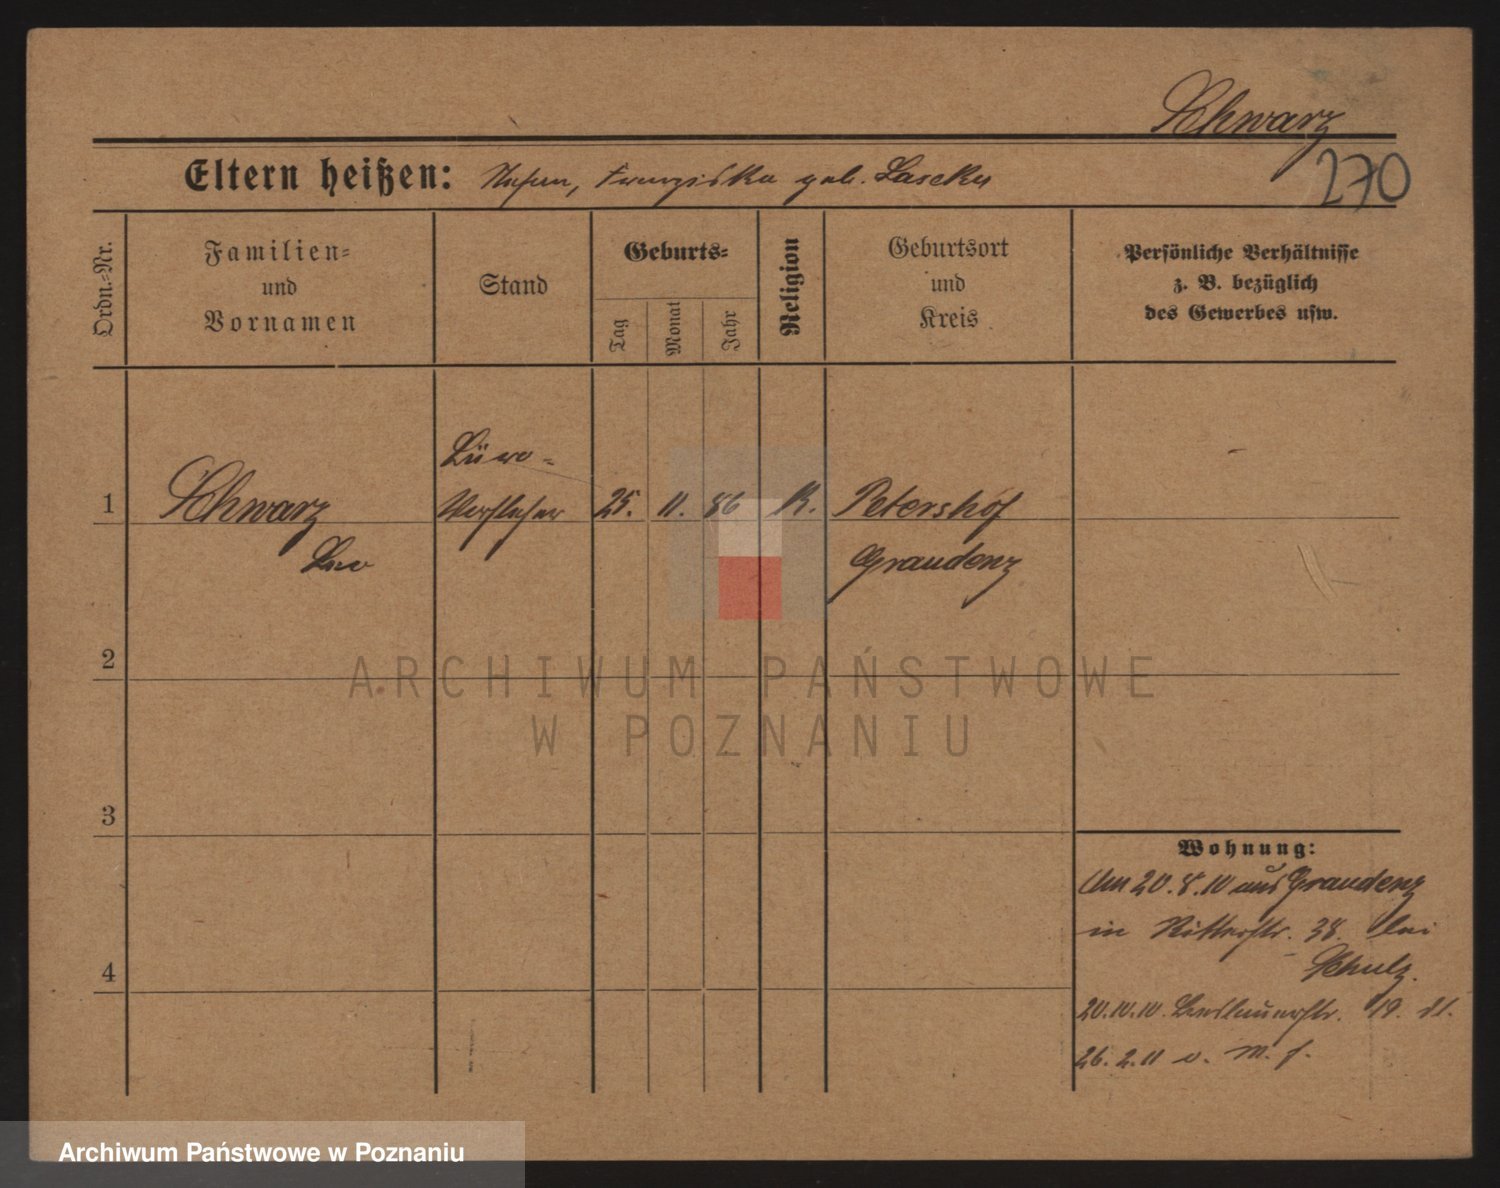 Schwarz
270
Eltern heißen: Franziska geb.
Ordn.-Nr.
Familien-
und
Vornamen
Stand
Geburts-
Tag
Monat
Jahr
Religion
Geburtsort
und
Kreis
Persönliche Verhältnisse
z. B. bezüglich
des Gewerbes usw.
Büro-
1 Schwarz Vorsteher 25. 11. 86 K. Petershof
Leo Graudenz
2
3
4
Wohnung:
Am 20.8.10 aus Graudenz
in Ritterstr. 38. bei
Schulz.
20.10.10. Breslauerstr. 19.
26.2.11
ARCHIWUM PAŃSTWOWE
W POZNANIU
Archiwum Państwowe w Poznaniu